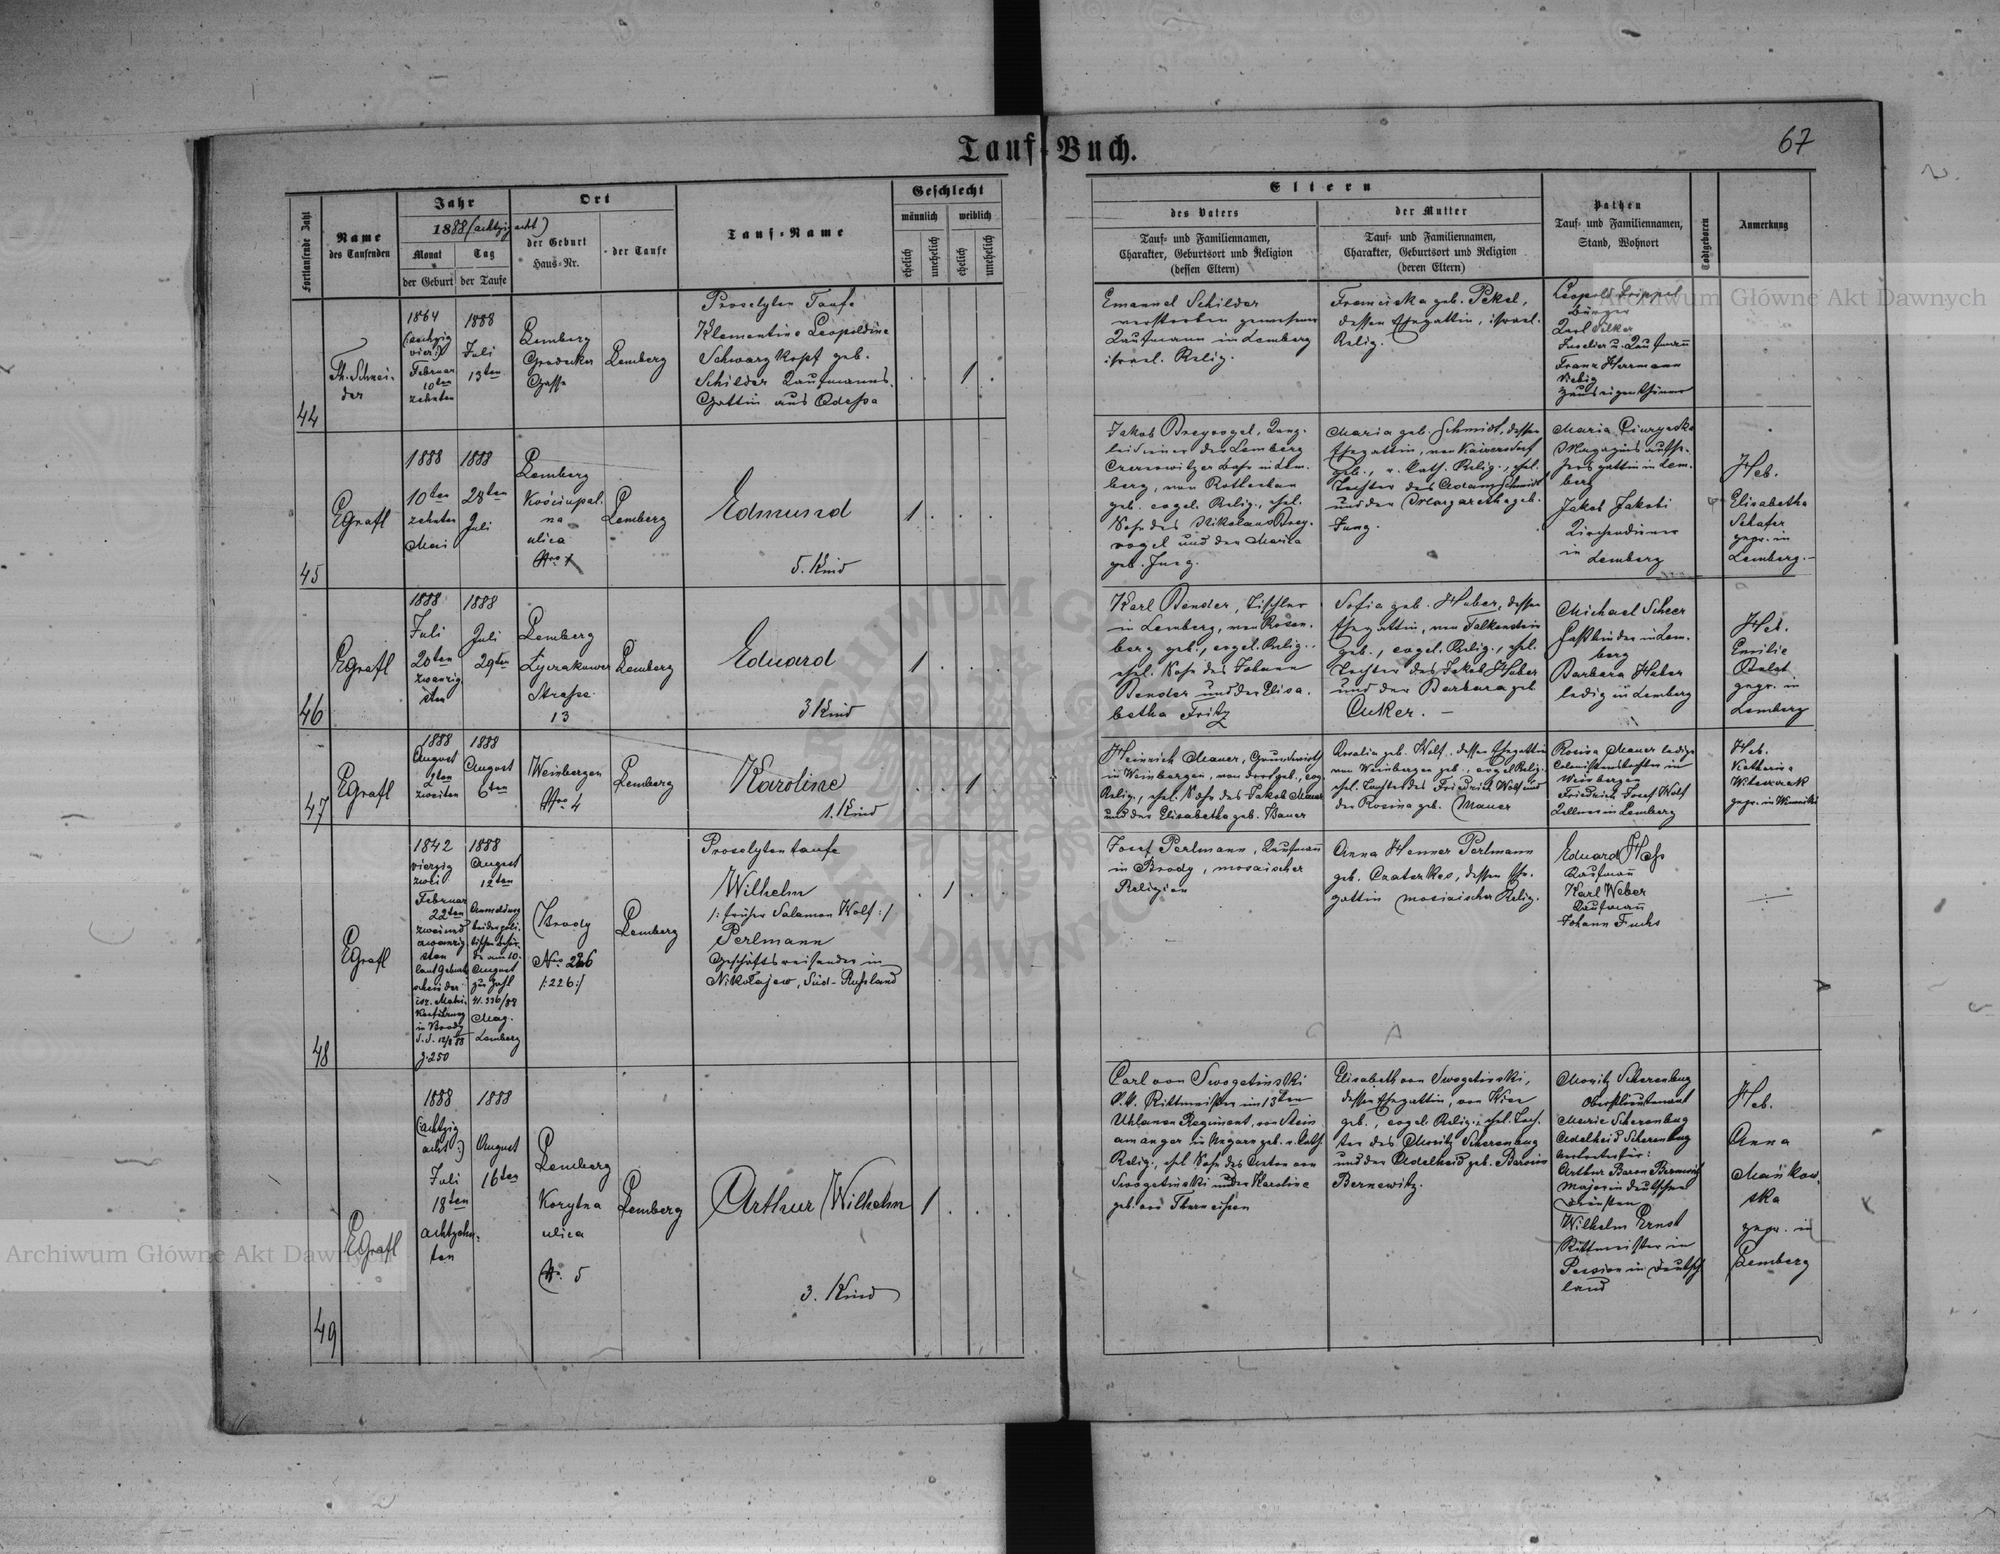 Tauf-Buch.
67
Fortlaufende Zahl
Name
des Taufenden
Jahr
1888 (achtzig acht)
Monat
der Geburt
Tag
der Taufe
Ort
der Geburt
Haus-Nr.
der Taufe
Tauf-Name
Geschlecht
männlich
weiblich
ehelich
unehelich
ehelich
unehelich
Eltern
des Vaters
Tauf- und Familiennamen,
Charakter, Geburtsort und Religion
(dessen Eltern)
der Mutter
Tauf- und Familiennamen,
Charakter, Geburtsort und Religion
(deren Eltern)
Pathen
Tauf- und Familiennamen,
Stand, Wohnort
Todtgeboren
Anmerkung
44
Th. Schnei-
der
1864
Februar
10ten
zehnten
1888
Juli
13ten
Lemberg
Grodecker
Gasse
Lemberg
Proselyten Taufe
Klementine Leopoldine
Schwarzkopf geb.
Schilder Kaufmanns
Gattin aus Odessa
1
Emanuel Schilder
verstorben gewesener
Kaufmann in Lemberg
israel. Relig.
Franciska geb. Pekel,
dessen Ehegattin, israel.
Relig.
Leopold
Bürger
Karl
Juwelier u. Kaufmann
Franz Herrmann
Hauseigenthümer
45
EGrafl
1888
10ten
zehnten
Mai
1888
28ten
Juli
Lemberg
Kościopal
na
ulica
Nro 1
Lemberg
Edmund
5. Kind
1
Jakob Breyvogel, Kanz-
leidiener der Lemberg
Czernowitzer Bahn in Lem-
berg, von
geb. evgel. Relig., ehel.
Sohn des Nikolaus Brey-
vogel und der Maria
geb. Jung.
Maria geb. Schmidt, dessen
Ehegattin, von Kaisersdorf
geb., r. kath. Relig., ehel.
Tochter des Adam Schmidt
und der Margaretha geb.
Jung.
Maria
Magazinsaufse-
hersgattin in Lem-
berg
Jakob Jakobi
Kirchendiener
in Lemberg
Heb.
Elisabetha
Schafer
gepr. in
Lemberg.
46
EGrafl
1888
Juli
20ten
zwanzig
sten
1888
Juli
29ten
Lemberg
Łyczakower
Strasse
13
Lemberg
Eduard
3. Kind
1
Karl Bender, Tischler
in Lemberg, von Rosen-
berg geb., evgel. Relig.,
ehel. Sohn des Johann
Bender und der Elisa-
betha Fritz
Sofia geb. Huber, dessen
Ehegattin, von Falkenstein
geb., evgel. Relig., ehel.
Tochter des Jakob Huber
und der Barbara geb.
Cuker.
Michael Scheer
Fassbinder in Lem-
berg
Barbara Huber
ledig in Lemberg
Heb.
Emilie
gepr. in
Lemberg
47
EGrafl
1888
August
2ten
zweiten
1888
August
6ten
Weinbergen
Nro 4
Lemberg
Karoline
1. Kind
1
Heinrich Mauer, Grundwirth
in Weinbergen, von dort geb., evg.
Relig., ehel. Sohn des Jakob Mauer
und der Elisabetha geb. Bauer
Rosalia geb. Wolf, dessen Ehegattin
von Weinbergen geb., evgel. Relig.
ehel. Tochter des Friedrich Wolf und
der Rosina geb. Mauer
Rosina Mauer ledige
Colonistenstochter in
Weinbergen
Friedrich Josef Wolf
Kellner in Lemberg
Heb.
Katherina
gepr. in Winniki
48
EGrafl
1842
vierzig
zwei
Februar
22ten
zweiund
zwanzig
sten
laut Geburts
schein der
isr. Matri-
kenführung
in Brody
d.d. 12/8 88
Z. 250
1888
August
12ten
Anmeldung
bei der poli-
tischen Behör-
de am 10.
August
zur Zahl
41.336/88
Mag.
Lemberg
Brody
Nro 226
/:226:/
Lemberg
Proselytentaufe
Wilhelm
/: früher Salamon Wolf :/
Perlmann
Geschäftsreisender in
Nikolajew, Süd-Russland
1
Josef Perlmann, Kaufmann
in Brody, mosaischer
Religion
Anna Henner Perlmann
geb. Czaterkes, dessen Ehe-
gattin mosaischer Relig.
Eduard Hess
Kaufmann
Karl Weber
Kaufmann
Johann Fuchs
49
EGrafl
1888
(achtzig
acht)
Juli
18ten
achtzehn-
ten
1888
August
16ten
Lemberg
Korytna
ulica
Nr. 5
Lemberg
Arthur Wilhelm
3. Kind
1
Carl von Swogetinski
k.k. Rittmeister im 13ten
Uhlanen Regiment, von Stein
am anger in Ungarn geb. r. kath.
Relig., ehel. Sohn des Anton von
Swogetinski und der Karoline
geb. von
Elisabeth von Swogetinski,
dessen Ehegattin, von Wien
geb., evgel. Relig., ehel. Toch-
ter des Moritz Scherenberg
und der Adelheid geb. Baronin
Bernewitz.
Moritz Scherenberg
Oberstlieutenant
Marie Scherenberg
Adelheid Scherenberg
Vertreter für:
Arthur Baron Bernewitz
Major in deutschen
Diensten
Wilhelm Ernst
Rittmeister in
Pension in Deutsch-
land
Heb.
Anna
Mańkow-
ska
gepr. in
Lemberg
Archiwum Główne Akt Dawnych
Archiwum Główne Akt Dawnych